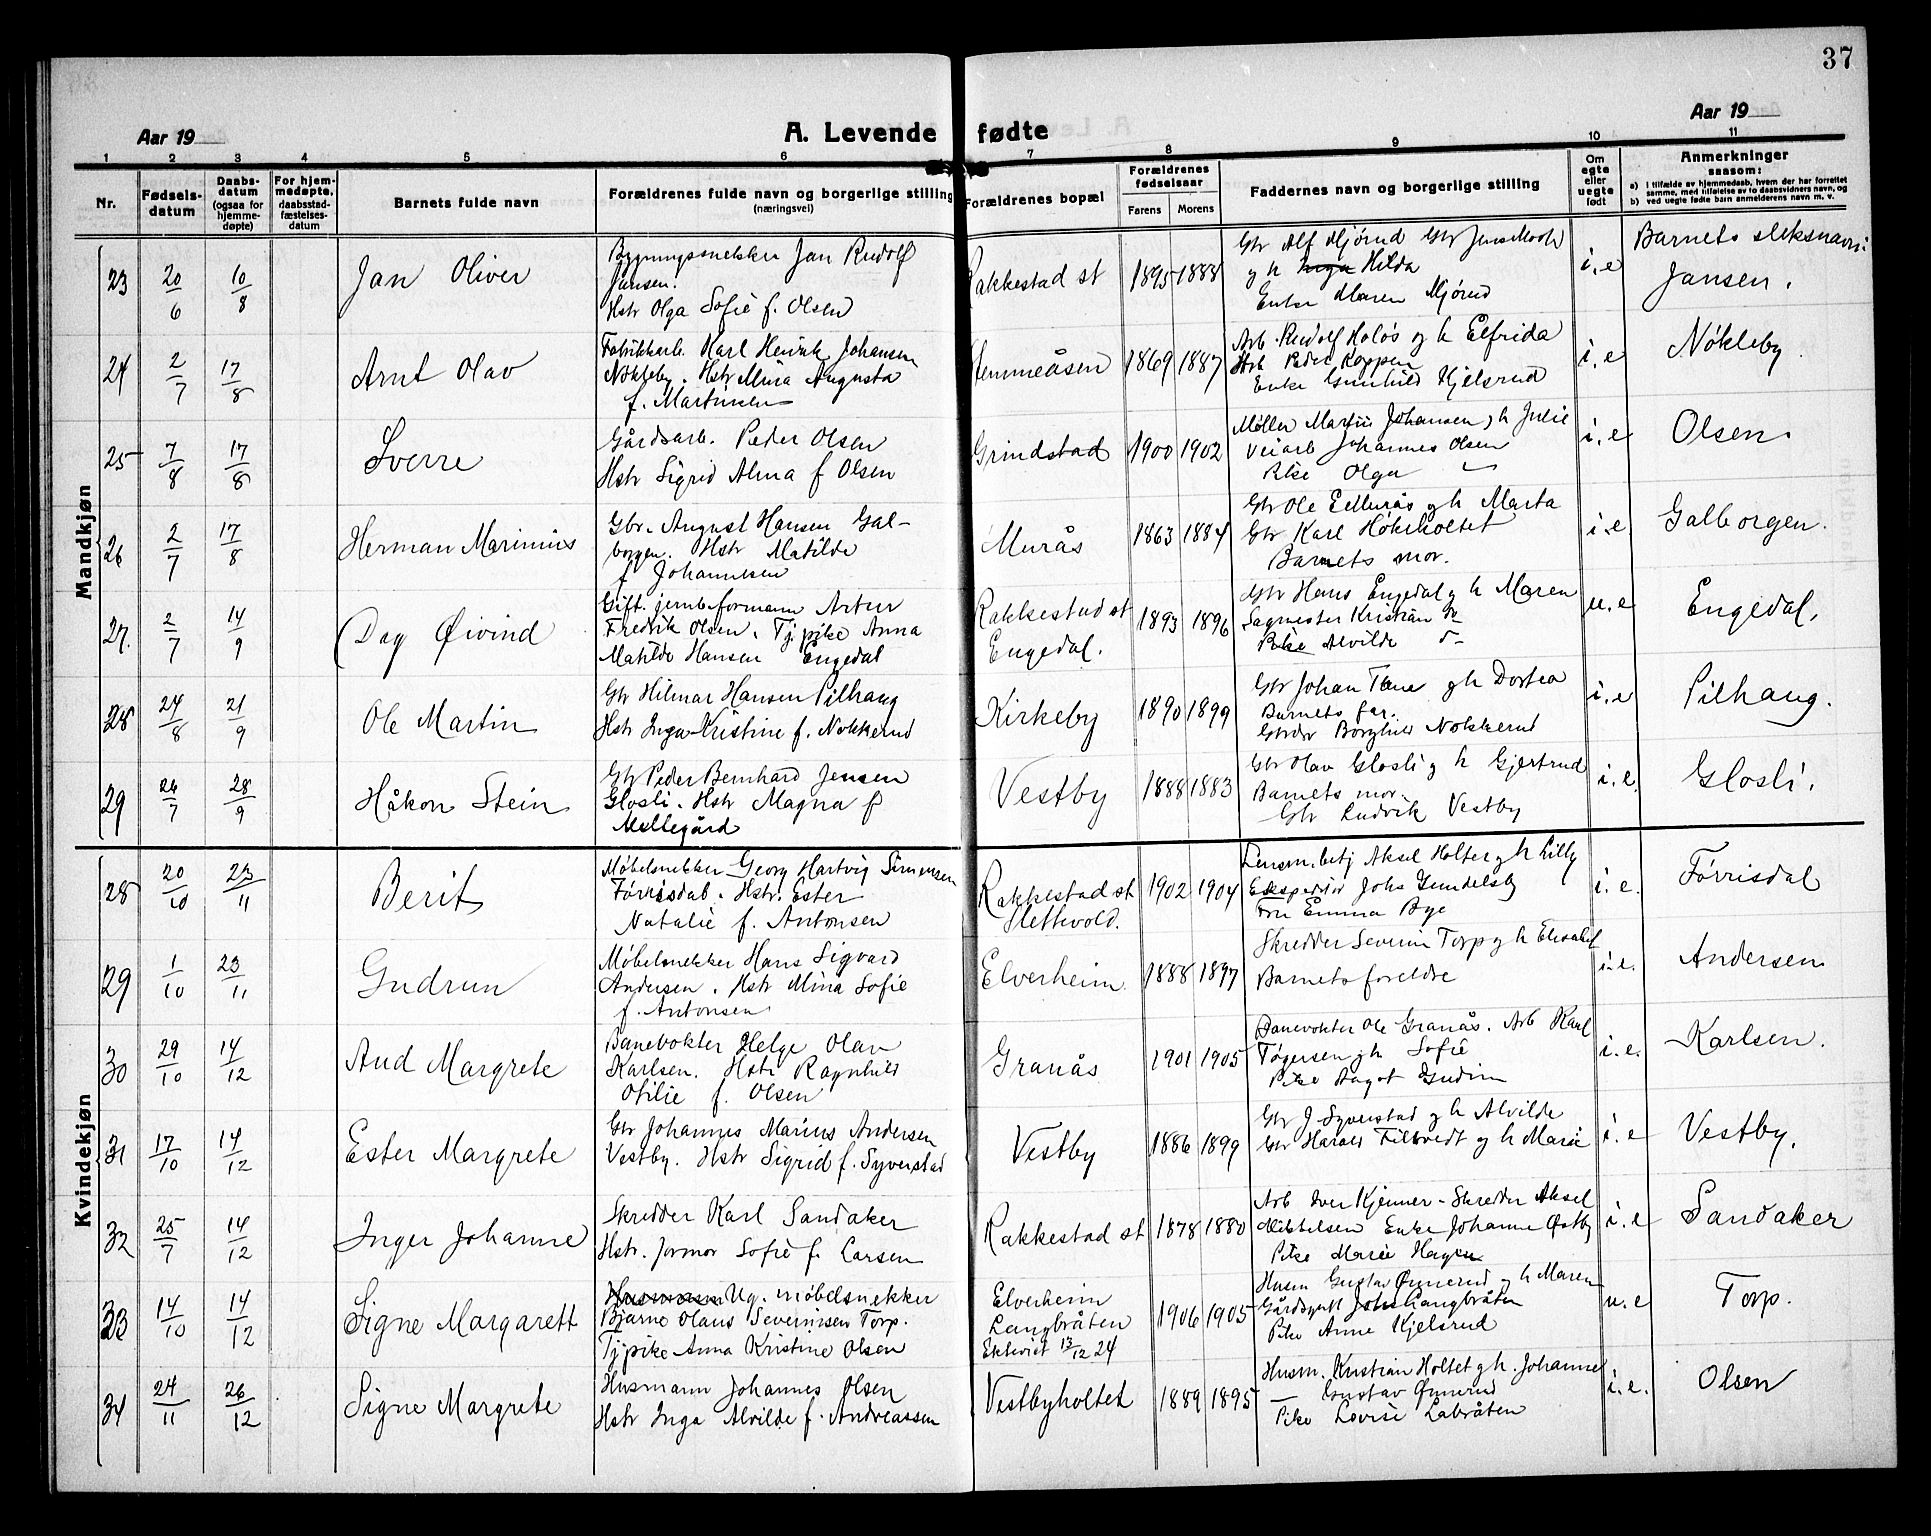 37
Aar 19
A. Levende fødte
Aar 19
1 2 3 4 5 6 7 8 9 10 11
Nr.
Fødsels-
datum
Daabs-
datum
(ogsaa for
hjemme-
døpte)
For hjem-
medøpte,
daabsstad-
fæstelses-
datum
Barnets fulde navn
Forældrenes fulde navn og borgerlige stilling
(næringsvei)
Forældrenes bopæl
Forældrenes
fødselsaar
Farens Morens
Faddernes navn og borgerlige stilling
Om
egte
eller
uegte
født
Anmerkninger
saasom:
a) i tilfælde av hjemmedaab, hvem der har forrettet
samme, med tilføielse av to daabsvidners navn, og
b) ved uegte fødte barn anmelderens navn m. v.
Mandkjøn
23 20/6 10/8 Jan Oliver
Bygningssnekker Jan Rudolf
Jansen.
Hstr Olga Sofie f. Olsen
Rakkestad st 1895 1888
Gbr Alf Mjørud Gbr Jens Moch
og h Inga Hilda
Enke Maren Mjørud
i. e
Barnets slektsnavn:
Jansen.
24 2/7 17/8 Arnt Olav
Fabrikkarb. Karl Henrik Johansen
Nøkleby. Hstr Mina Augusta
f. Martinsen
Stemmeåsen 1869 1887
Arb. Rudolf Holøs og h Elfrida
Arb Peder Koppen
Enke Gunhild Kjelsrud
i. e
Nøkleby.
25 7/8 17/8 Sverre
Gårdsarb. Peder Olsen
Hstr Sigrid Alma f Olsen
Grindstad 1900 1902
Møller Martin Johansen, h Julie
Veiarb Johannes Olsen
Pike Olga
i. e
Olsen.
26 2/7 17/8 Herman Marinius
Gbr. August Hansen Gal-
borgen. Hstr Matilde
f Johannesen
Murås 1863 1884
Gbr Ole Ellerås og h Marta
Gbr Karl Høkholtet
Barnets mor.
i. e
Galborgen.
27. 2/7 14/9 Dag Øivind
Gift. jernb.formann Artur
Fredrik Olsen. Tj.pike Anna
Matilde Hansen Engedal
Rakkestad st
Engedal.
1893 1896
Gbr Hans Engedal og h Maren
Sagmester Kristian do
Pike Alvilde do
u. e
Engedal.
28 24/8 21/9 Ole Martin
Gbr Hilmar Hansen Pilhaug
Hstr Inga Kristine f. Nokkerud
Kirkeby 1890 1899
Gbr Johan Tane og h Dortea
Barnets far.
Gbrdtr Borghild Nokkerud
i. e
Pilhaug.
29 26/7 28/9 Håkon Stein
Gbr Peder Bernhard Jensen
Glosli. Hstr Magna f
Møllegård
Vestby 1888 1883
Gbr Olav Glosli og h Gjertrud
Barnets mor.
Gbr Ludvik Vestby
i. e.
Glosli.
Kvindekjøn
28 20/10 23/11 Berit
Møbelsnekker Georg Hartvig Simensen
Førrisdal. Hstr. Ester
Natalie f. Antonsen
Rakkestad st
Slettevold.
1902 1904
Lensm.betj Aksel Holter og h Lilly
Ekspeditør Johs Gundelsby
Fru Emma Bye
i. e.
Førrisdal
29 1/10 23/11 Gudrun
Møbelsnekker Hans Sigvard
Andersen. Hstr Mina Sofie
f. Antonsen
Elverheim 1888 1897
Skredder Severin Torp og h Elisabet
Barnets foreldre
i. e.
Andersen
30 29/10 14/12 Aud Margrete
Banevokter Helge Olav
Karlsen. Hstr Ragnhild
Otilie f. Olsen
Granås 1901 1905
Banevokter Ole Granås. Arb Karl
Tøgersen og h Sofie
Pike Aagot Gudim
i. e.
Karlsen.
31 17/10 14/12 Ester Margrete
Gbr Johannes Marius Andersen
Vestby. Hstr Sigrid f. Syverstad
Vestby 1886 1899
Gbr J. Syverstad og h Alvilde
Gbr Harald Filtvedt og h Marie
i. e
Vestby.
32 25/7 14/12 Inger Johanne
Skredder Karl Sandaker
Hstr. Jormor Sofie f. Larsen
Rakkestad st 1878 1880
Arb Iver Kjenner - Skredder Aksel
Mikkelsen Enke Johanne Østby
Pike Marie Hagen
i. e
Sandaker
33 14/10 14/12 Signe Margarett
Husmann Ug. møbelsnekker
Bjarne Olaus Severinsen Torp.
Tj.pike Anna Kristine Olsen
Elverheim
Langbråten
Ekteviet 13/12 24
1906 1905
Husm Gustav Ønnerud og h Maren
Gårdsgutt Johs Langbråten
Pike Anne Kjelsrud
u. e
Torp.
34 24/11 26/12 Signe Margrete
Husmann Johannes Olsen
Hstr Inga Alvilde f. Andreassen
Vestbyholtet 1889 1895
Husm. Kristian Holtet og h. Johanne
— Gustav Ønnerud
Pike Lovise Labråten
i. e.
Olsen